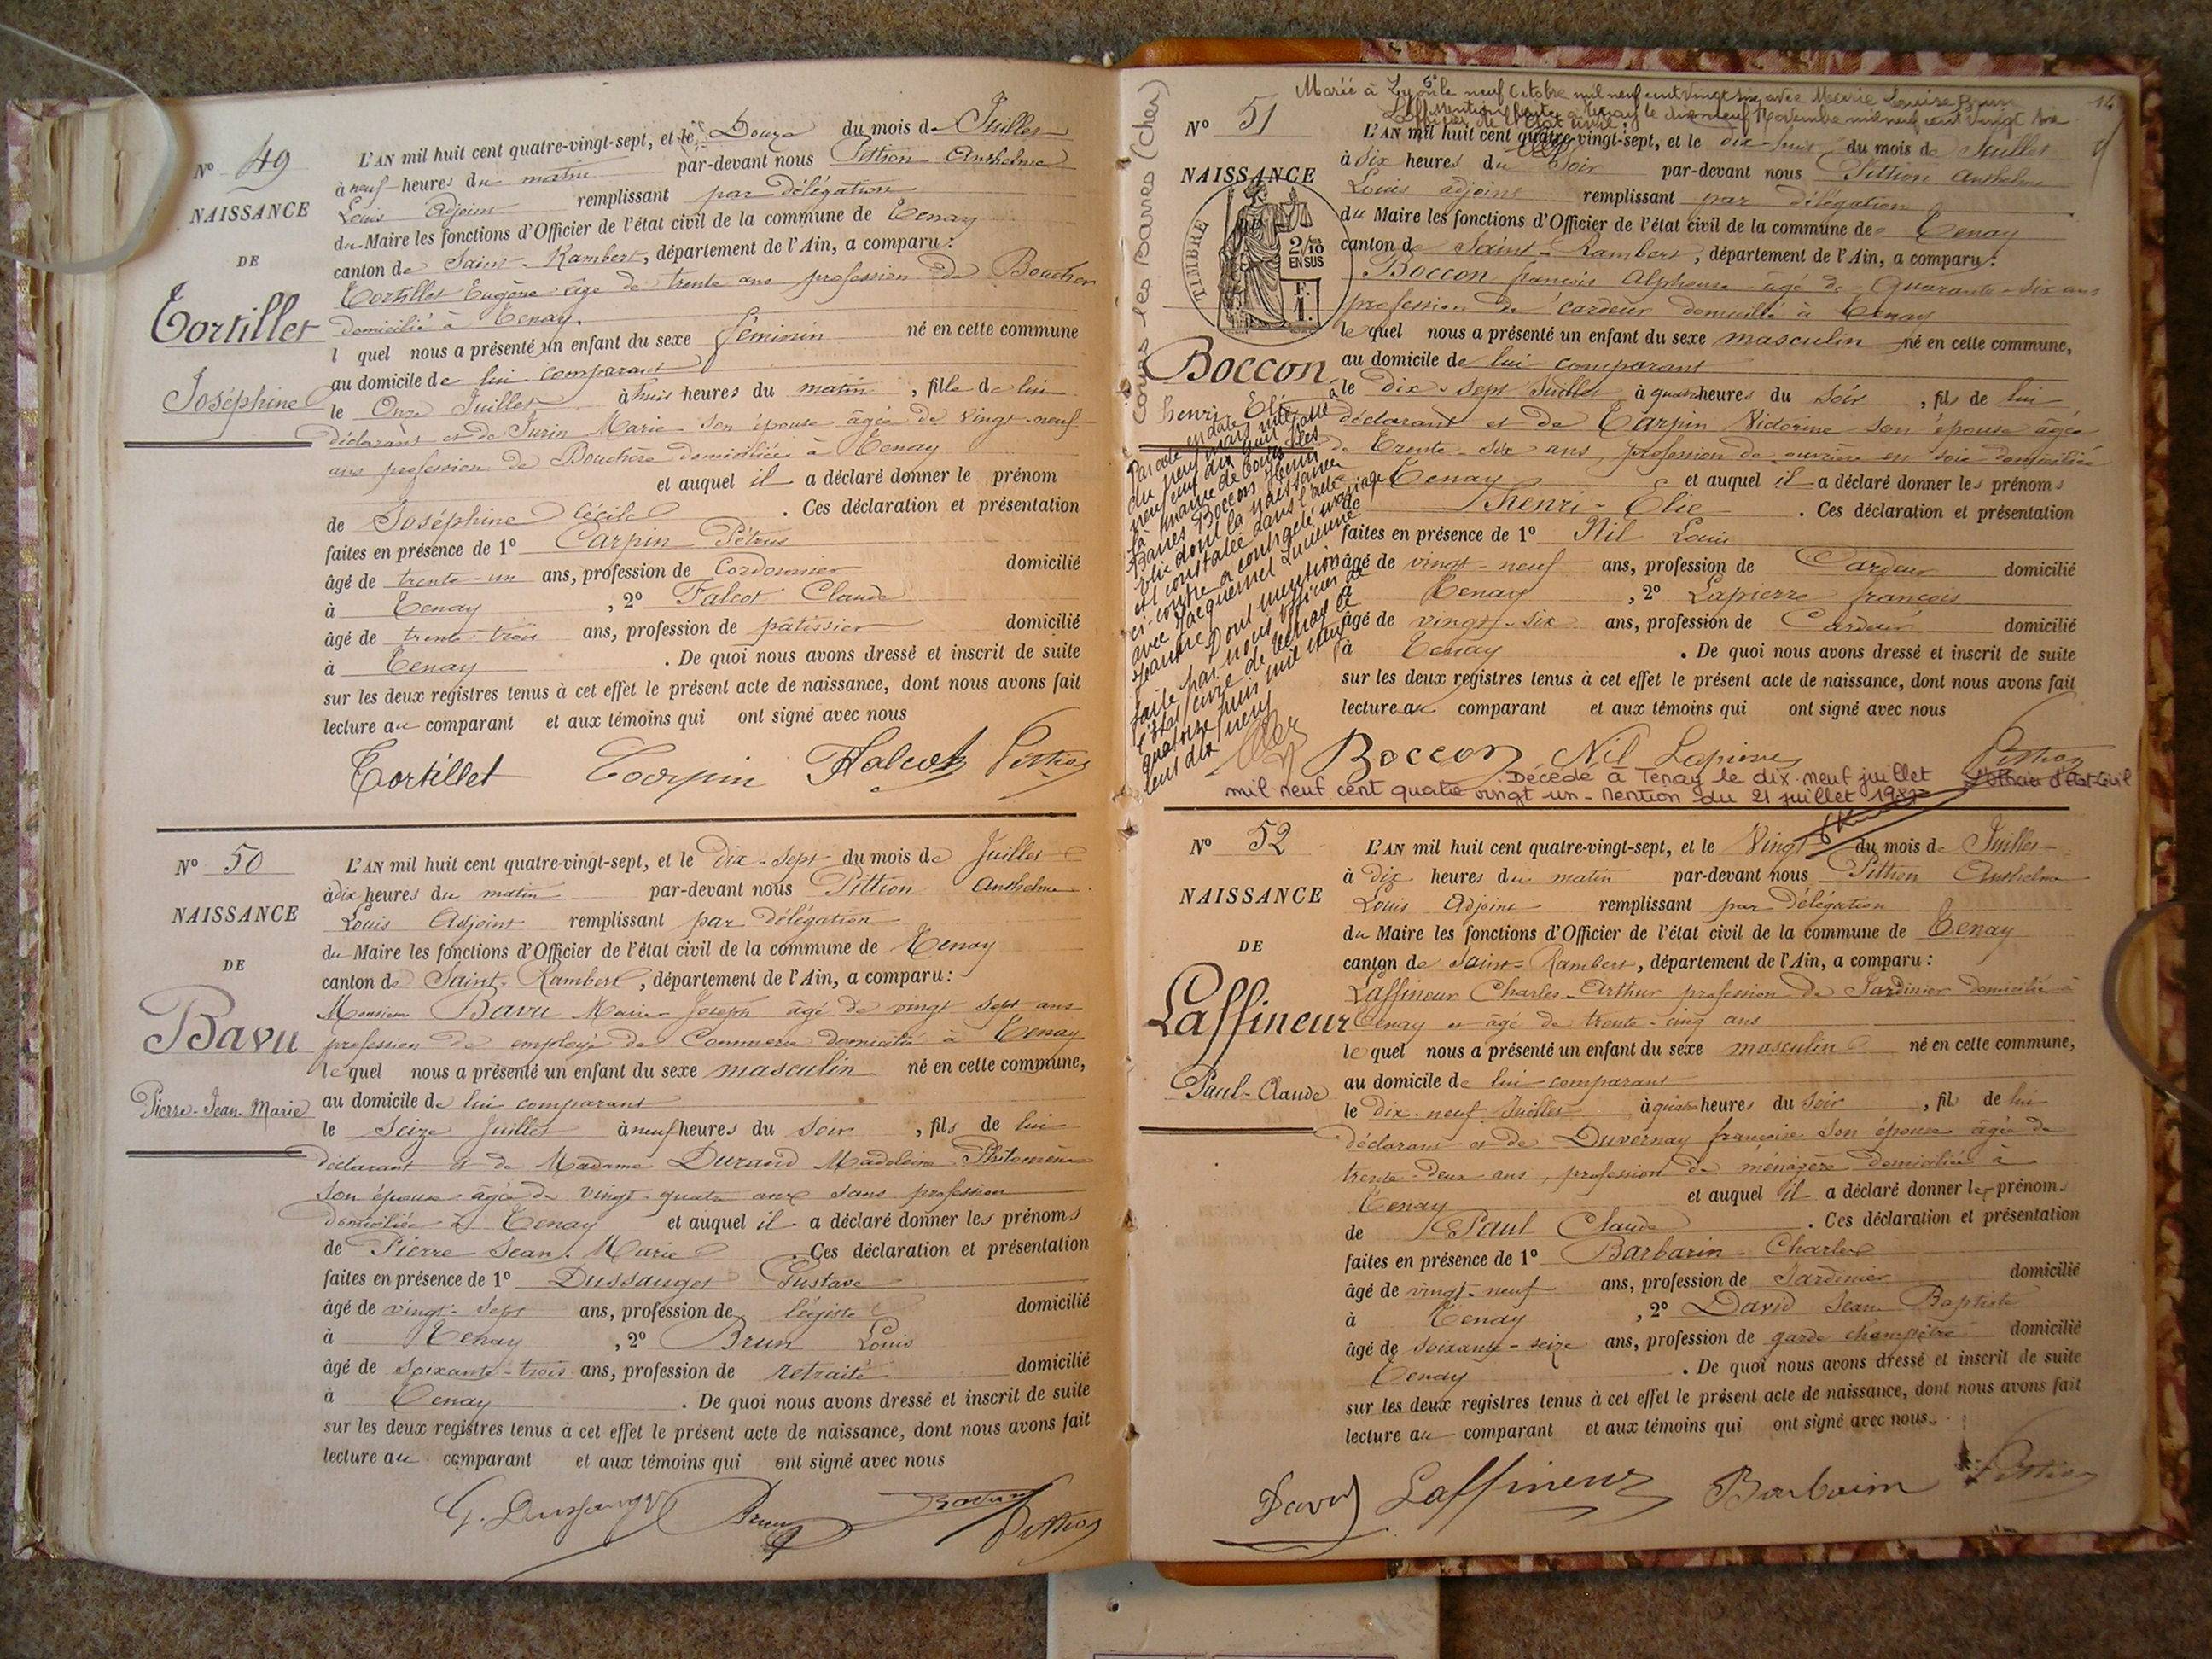 N° 49
NAISSANCE
DE
Tortillet
Joséphine
L'AN mil huit cent quatre-vingt-sept, et le Douze du mois de Juillet
à neuf heures du matin par-devant nous Pittion Anthelme
Louis Adjoint remplissant par délégation
du Maire les fonctions d'Officier de l'état civil de la commune de Tenay
canton de Saint-Rambert, département de l'Ain, a comparu :
Tortillet Eugène âgé de trente ans profession de Boucher
domicilié à Tenay.
l quel nous a présenté un enfant du sexe féminin né en cette commune
au domicile de lui comparant
le Onze Juillet à huit heures du matin, fille de lui
déclarant et de Jurin Marie son épouse âgée de vingt-neuf
ans profession de Bouchère domiciliée à Tenay
et auquel il a déclaré donner le prénom
de Joséphine Cécile. Ces déclaration et présentation
faites en présence de 1° Carpin Pétrus
âgé de trente-un ans, profession de Cordonnier domicilié
à Tenay, 2° Falcot Claude
âgé de trente-trois ans, profession de pâtissier domicilié
à Tenay. De quoi nous avons dressé et inscrit de suite
sur les deux registres tenus à cet effet le présent acte de naissance, dont nous avons fait
lecture au comparant et aux témoins qui ont signé avec nous
Tortillet Carpin Falcot Pittion
N° 50
NAISSANCE
DE
Bavu
Pierre-Jean-Marie
L'AN mil huit cent quatre-vingt-sept, et le dix-sept du mois de Juillet
à dix heures du matin par-devant nous Pittion Anthelme
Louis Adjoint remplissant par délégation
du Maire les fonctions d'Officier de l'état civil de la commune de Tenay
canton de Saint-Rambert, département de l'Ain, a comparu :
Monsieur Bavu Marie Joseph âgé de vingt sept ans
profession de employé de Commerce domicilié à Tenay
le quel nous a présenté un enfant du sexe masculin né en cette commune,
au domicile de lui comparant
le Seize Juillet à neuf heures du soir, fils de lui
déclarant et de Madame Durand Madeleine Philomène
son épouse âgée de vingt-quatre ans sans profession
domiciliée à Tenay et auquel il a déclaré donner les prénoms
de Pierre Jean Marie. Ces déclaration et présentation
faites en présence de 1° Dussauget Gustave
âgé de vingt-sept ans, profession de légiste domicilié
à Tenay, 2° Brun Louis
âgé de soixante-trois ans, profession de retraité domicilié
à Tenay. De quoi nous avons dressé et inscrit de suite
sur les deux registres tenus à cet effet le présent acte de naissance, dont nous avons fait
lecture au comparant et aux témoins qui ont signé avec nous
G. Dussauget Brun Bavu Pittion
14
Marié à Lyon 5e le neuf Octobre mil neuf cent vingt six avec Marie Louise Brun
Mention faite à Tenay le dix neuf Novembre mil neuf cent vingt six
L'officier de l'état civil :
N° 51
NAISSANCE
TIMBRE
2/10 EN SUS
F. 1.
Boccon
henri Elie
L'AN mil huit cent quatre-vingt-sept, et le dix-huit du mois de Juillet
à six heures du soir par-devant nous Pittion Anthelme
Louis adjoint remplissant par délégation
du Maire les fonctions d'Officier de l'état civil de la commune de Tenay
canton de Saint-Rambert, département de l'Ain, a comparu :
Boccon françois Alphonse âgé de Quarante-six ans
profession de cardeur domicilié à Tenay
le quel nous a présenté un enfant du sexe masculin né en cette commune,
au domicile de lui comparant
le dix-sept Juillet à quatre heures du soir, fils de lui
déclarant et de Carpin Victorine son épouse âgée
de trente-six ans, profession de ouvrière en soie domiciliée
à Tenay et auquel il a déclaré donner les prénoms
henri-Elie. Ces déclaration et présentation
faites en présence de 1° Nil Louis
âgé de vingt-neuf ans, profession de Cardeur domicilié
Tenay, 2° Lapierre françois
âgé de vingt-six ans, profession de Cardeur domicilié
à Tenay. De quoi nous avons dressé et inscrit de suite
sur les deux registres tenus à cet effet le présent acte de naissance, dont nous avons fait
lecture au comparant et aux témoins qui ont signé avec nous
Boccon Nil Lapierre Pittion
Par acte en date
du neuf mars mil
neuf cent dix neuf passé
à la mairie de Cours-les
Barres (Cher)
Boccon Henri
Elie dont la naissance
est constatée dans l'acte
ci-contre a contracté mariage
avec Jacquemet Lucienne
Jeanne Dont mention
faite par nous officier de
l'état civil de Tenay le
quatorze juin mil neuf
cent dix neuf
Décédé à Tenay le dix-neuf juillet
mil neuf cent quatre vingt un - Mention du 21 juillet 1981
L'officier d'état-civil
N° 52
NAISSANCE
DE
Laffineur
Paul-Claude
L'AN mil huit cent quatre-vingt-sept, et le Vingt du mois de Juillet
à dix heures du matin par-devant nous Pittion Anthelme
Louis Adjoint remplissant par Délégation
du Maire les fonctions d'Officier de l'état civil de la commune de Tenay
canton de Saint-Rambert, département de l'Ain, a comparu :
Laffineur Charles-Arthur profession de Jardinier domicilié à
Tenay et âgé de trente-cinq ans
le quel nous a présenté un enfant du sexe masculin né en cette commune,
au domicile de lui comparant
le dix-neuf Juillet à quatre heures du soir, fils de lui
déclarant et de Duvernay françoise son épouse âgée de
trente-deux ans, profession de ménagère domiciliée à
Tenay et auquel il a déclaré donner le prénom
de Paul Claude. Ces déclaration et présentation
faites en présence de 1° Barbarin Charles
âgé de vingt-neuf ans, profession de Jardinier domicilié
à Tenay, 2° David Jean Baptiste
âgé de soixante-seize ans, profession de garde champêtre domicilié
Tenay. De quoi nous avons dressé et inscrit de suite
sur les deux registres tenus à cet effet le présent acte de naissance, dont nous avons fait
lecture au comparant et aux témoins qui ont signé avec nous.
David Laffineur Barbarin Pittion